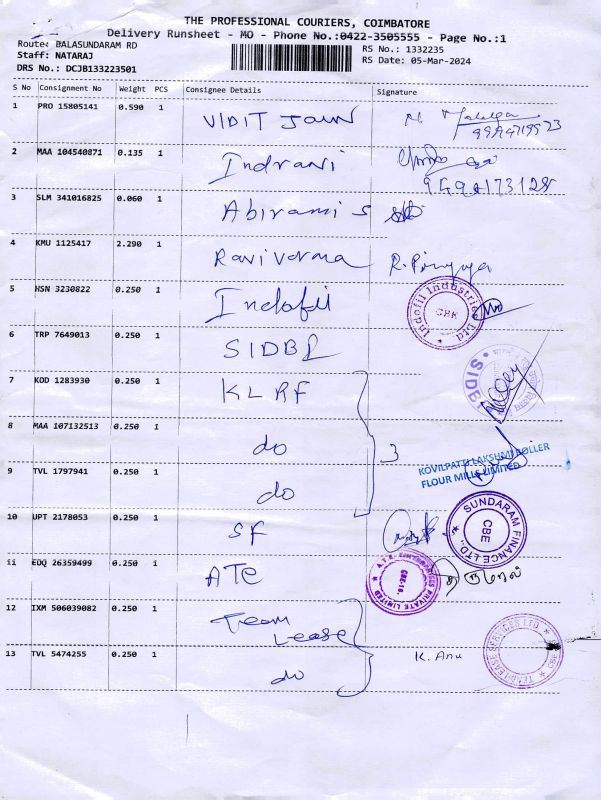 THE PROFESSIONAL COURIERS, COIMBATORE
Delivery Runsheet - MO - Phone No.:0422-3505555 - Page No.:1
Route: BALASUNDARAM RD
RS No.: 1332235
Staff: NATARAJ
RS Date: 05-Mar-2024
DRS No.: DCJB133223501
S No Consignment No Weight PCS Consignee Details Signature
1 PRO 15805141 0.590 1 VIDIT JAIN
2 MAA 104540871 0.135 1 Indrani
3 SLM 341016825 0.060 1 Abirami S
4 KMU 1125417 2.290 1 Ravi Varma R. Priyya
5 HSN 3230822 0.250 1 Indofil
Indofil Industries Ltd CBE
6 TRP 7649013 0.250 1 SIDBI
SIDB
7 KOD 1283930 0.250 1 KLRF
8 MAA 107132513 0.250 1 do 3
KOVILPATTI LAKSHMI ROLLER
FLOUR MILLS LIMITED
9 TVL 1797941 0.250 1 do
10 UPT 2178053 0.250 1 SF
SUNDARAM FINANCE LTD. CBE
11 EDQ 26359499 0.250 1 ATE
A.T.E. ENTERPRISES PRIVATE LIMITED
12 IXM 506039082 0.250 1 Team
Lease
TEAMLEASE SERVICES LTD
13 TVL 5474255 0.250 1 do K. Anu